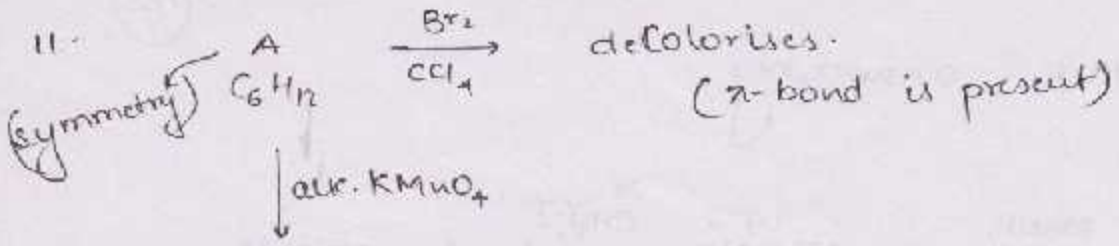 11. A Br₂ decolorises.
(symmetry) C₆H₁₂ CCl₄ (π-bond is present)
alk. KMnO₄